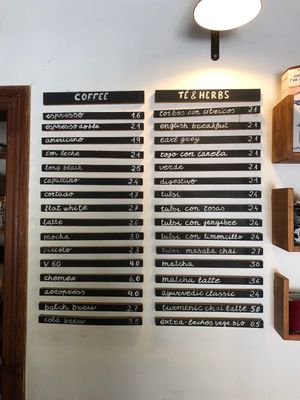 COFFEE
espresso 1.6
espresso doble 2.1
americano 1.9
con leche 2.1
long black 2.5
capuccino 2.4
cortado 1.7
flat white 2.7
latte 2.6
mocha 3.0
piccolo 2.3
V 60 4.0
chemex 6.0
aeropress 4.0
batch brew 2.7
cold brew 3.5
TÉ & HERBS
rosbos con citricos 2.1
english breakfast 2.1
earl grey 2.1
rojo con canela 2.1
verde 2.1
digestivo 2.1
tulsi 2.4
tulsi con rosas 2.4
tulsi con jengibre 2.4
tulsi con limoncillo 2.4
tulsi masala chai 2.7
matcha 3.0
matcha latte 3.6
ayurvedic classic 2.4
turmeric chai latte 5.0
extra-leches vege. bio 0.5